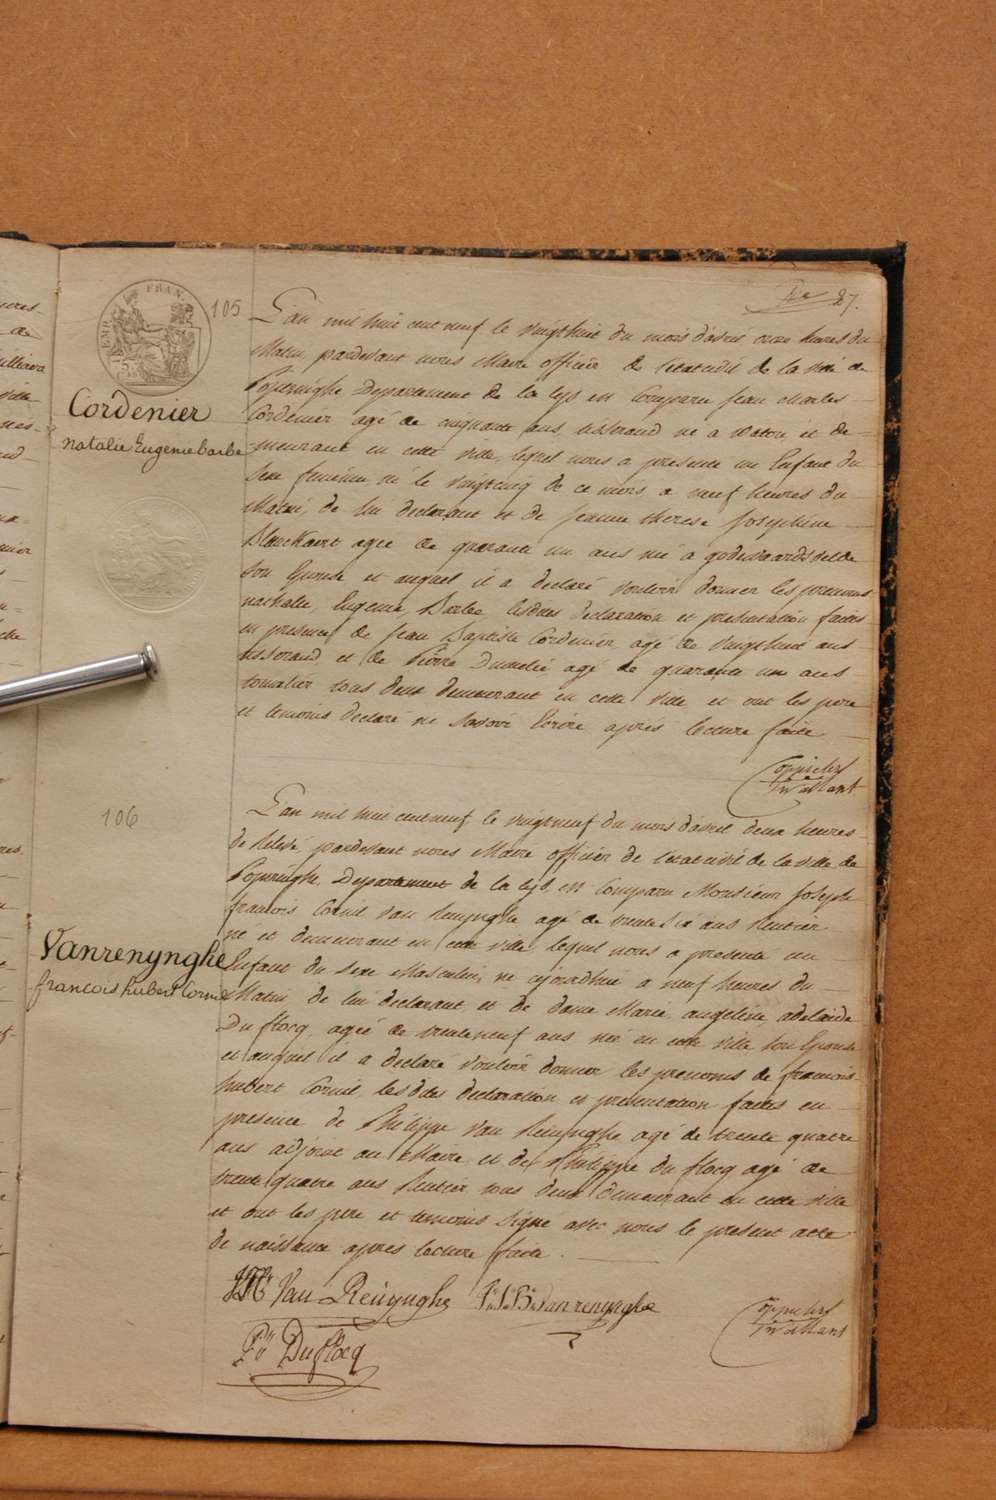 27.
105
Cordenier
natalie Eugenie barbe
L'an mil huit cent neuf le vingthuit du mois d'avril onze heures du
Matin, pardevant nous Maire officier de l'etatcivil de la ville de
Poperinghe, Departement de la Lys est Comparu Jean Charles
Cordenier agé de cinquante ans, tisserand né a Watou et de=
=meurant en cette ville, lequel nous a presenté un Enfant du
Sexe feminin, né le vingtcinq de ce mois a neuf heures du
Matin, de lui declarant et de Jeanne therese Josephine
Blanckaert agée de quarante un ans née a godewaersvelde
son Epouse et auquel il a declaré vouloir donner les prenoms
nathalie, Eugenie, Barbe, lesdites declaration et presentation faites
en presence de Jean Baptiste Cordenier, agé de vingthuit ans
tisserand et de Pierre Dumelié agé de quarante un ans
tonnelier tous deux demeurant en cette ville et ont les pere
et temoins declaré ne savoir Ecrire après lecture faite
106
Vanrenynghe
francois hubert Cornil
L'an mil huit cent neuf, le vingtneuf du mois d'avril deux heures
de relevé, pardevant nous Maire officier de l'etatcivil de la ville de
Poperinghe, Departement de la Lys, est Comparu Monsieur Joseph
francois Cornil Van Renynghe agé de trente six ans Rentier
né et demeurant en cette ville, lequel nous a presenté un
Enfant du sexe Masculin, né cejourdhui a neuf heures du
Matin, de lui declarant, et de dame Marie, angeline, adelaide
Duflocq, agée de trenteneuf ans née en cette ville son Epouse
et auquel il a declaré vouloir donner les prenoms de francois
hubert Cornil, lesdites declaration et presentation faites en
presence de Philippe Van Renynghe agé de trente quatre
ans adjoint au Maire, et de Philippe du flocq agé de
trente quatre ans Rentier tous deux demeurant en cette ville
et ont les pere et temoins signé avec nous le present acte
de naissance après lecture faite.
Van Renynghe
Vanrenynghe
DuFlocq